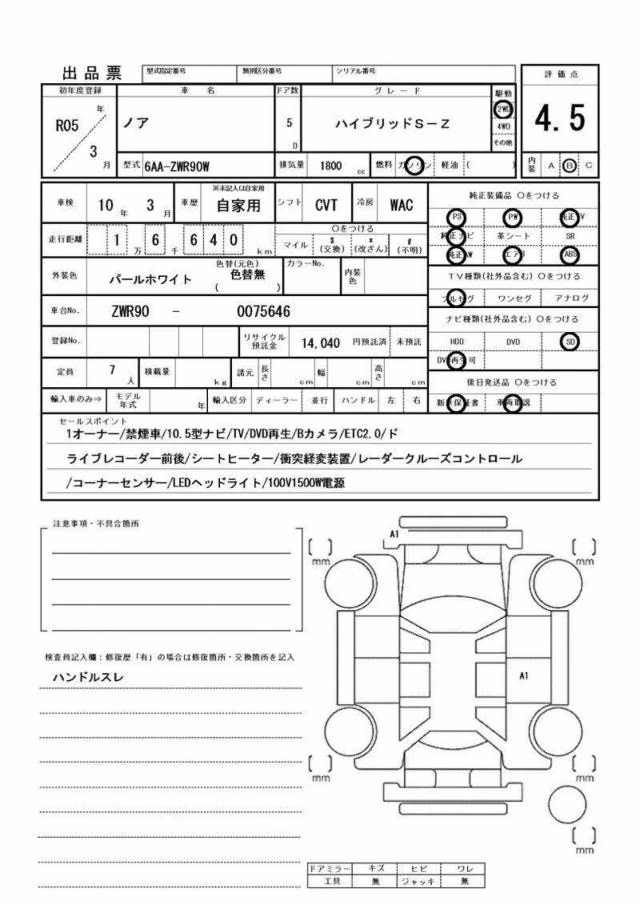 出品票 型式指定番号 類別区分番号 シリアル番号 評価点
初年度登録 車名 ドア数 グレード 駆動
R05 年 3 月 ノア 5 D ハイブリッドS-Z 2WD 4WD その他 4.5
型式 6AA-ZWR90W 排気量 1800 cc 燃料 ガソリン 軽油 ( ) 内装 A B C
車検 10 年 3 月 車歴 ※未記入は自家用 自家用 シフト CVT 冷房 WAC 純正装備品 ○をつける
PS PW 純正TV
走行距離 1 万 6 千 6 4 0 km ○をつける
マイル $ (交換) * (改ざん) # (不明) 純正ナビ 革シート SR
純正AW エアB ABS
外装色 パールホワイト 色替(元色) 色替無 ( ) カラーNo. 内装色 TV種類(社外品含む) ○をつける
フルセグ ワンセグ アナログ
車台No. ZWR90 - 0075646 ナビ種類(社外品含む) ○をつける
登録No. リサイクル預託金 14,040 円預託済 未預託 HDD DVD SD
DVD再生可
定員 7 人 積載量 kg 諸元 長さ cm 幅 cm 高さ cm 後日発送品 ○をつける
輸入車のみ⇒ モデル年式 年 輸入区分 ディーラー 並行 ハンドル 左 右 新車保証書 車両取説
セールスポイント
1オーナー/禁煙車/10.5型ナビ/TV/DVD再生/Bカメラ/ETC2.0/ド
ライブレコーダー前後/シートヒーター/衝突経変装置/レーダークルーズコントロール
/コーナーセンサー/LEDヘッドライト/100V1500W電源
注意事項・不具合箇所
A1
[ ] mm [ ] mm
検査員記入欄：修復歴「有」の場合は修復箇所・交換箇所を記入
ハンドルスレ
A1
[ ] mm [ ] mm
[ ] mm
ドアミラー キズ ヒビ ワレ
工具 無 ジャッキ 無